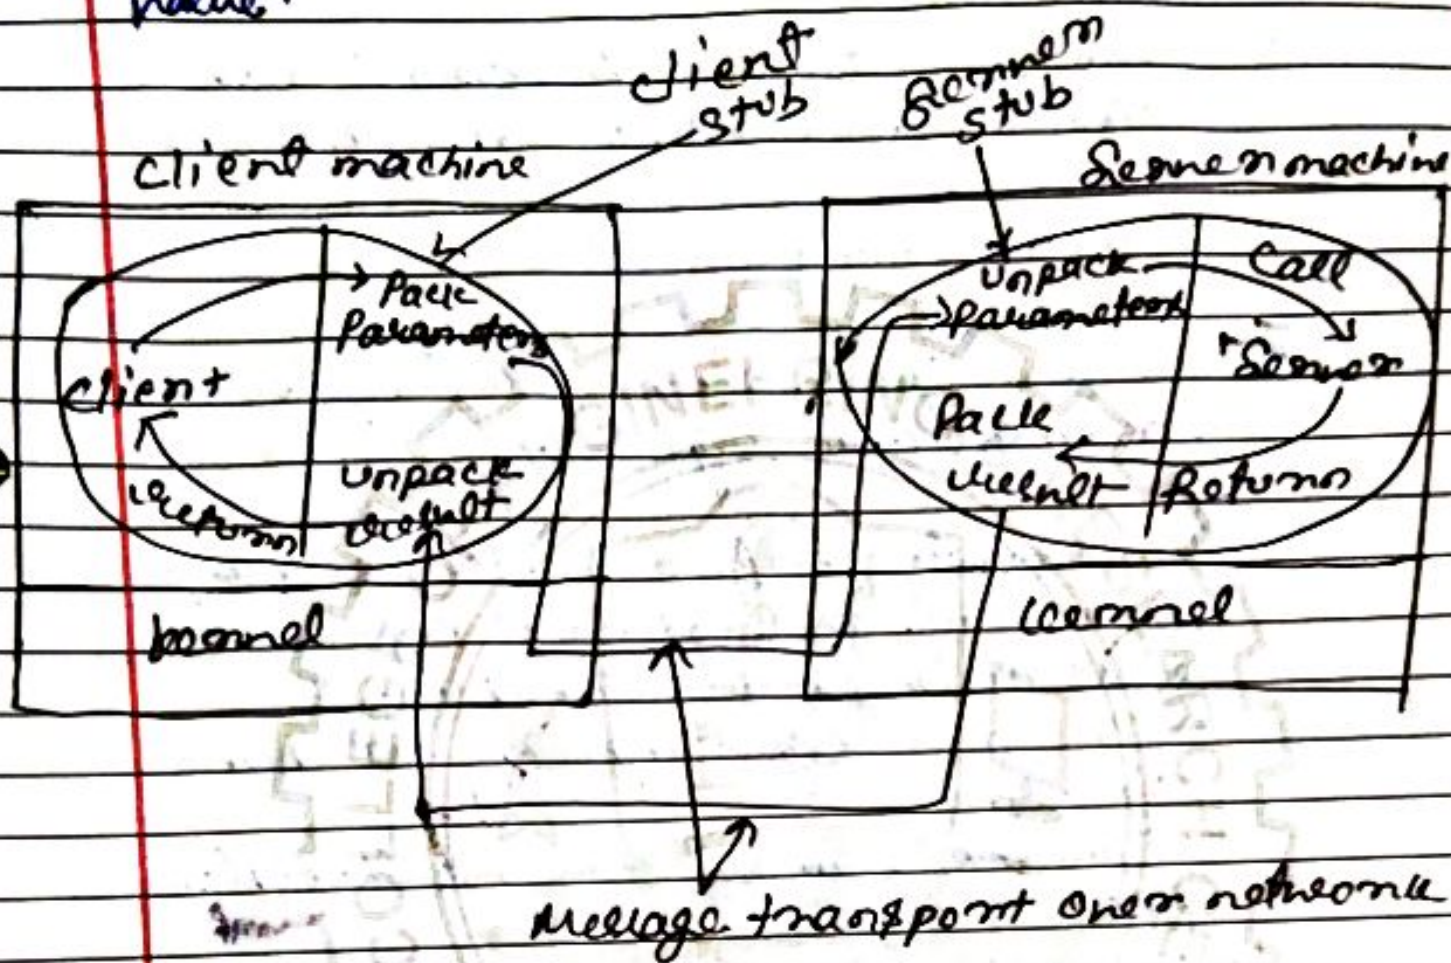 client
stub
Server
stub
client machine
Server machine
Pack
Parameters
client
return
unpack
result
unpack
Parameters
Call
Server
Pack
result
Return
kernel
kernel
Message transport over network